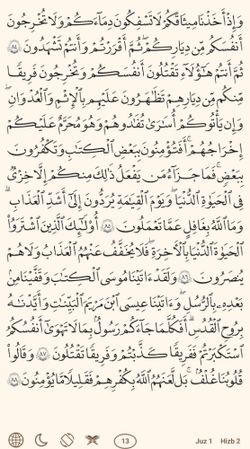 وَإِذْ أَخَذْنَا مِيثَٰقَكُمْ لَا تَسْفِكُونَ دِمَآءَكُمْ وَلَا تُخْرِجُونَ
أَنفُسَكُم مِّن دِيَٰرِكُمْ ثُمَّ أَقْرَرْتُمْ وَأَنتُمْ تَشْهَدُونَ ٨٤
ثُمَّ أَنتُمْ هَٰٓؤُلَآءِ تَقْتُلُونَ أَنفُسَكُمْ وَتُخْرِجُونَ فَرِيقًا
مِّنكُم مِّن دِيَٰرِهِمْ تَظَٰهَرُونَ عَلَيْهِم بِٱلْإِثْمِ وَٱلْعُدْوَٰنِ
وَإِن يَأْتُوكُمْ أُسَٰرَىٰ تُفَٰدُوهُمْ وَهُوَ مُحَرَّمٌ عَلَيْكُمْ
إِخْرَاجُهُمْ ۚ أَفَتُؤْمِنُونَ بِبَعْضِ ٱلْكِتَٰبِ وَتَكْفُرُونَ
بِبَعْضٍ ۚ فَمَا جَزَآءُ مَن يَفْعَلُ ذَٰلِكَ مِنكُمْ إِلَّا خِزْىٌ
فِى ٱلْحَيَوٰةِ ٱلدُّنْيَا ۖ وَيَوْمَ ٱلْقِيَٰمَةِ يُرَدُّونَ إِلَىٰٓ أَشَدِّ ٱلْعَذَابِ ۗ
وَمَا ٱللَّهُ بِغَٰفِلٍ عَمَّا تَعْمَلُونَ ٨٥ أُو۟لَٰٓئِكَ ٱلَّذِينَ ٱشْتَرَوُا۟
ٱلْحَيَوٰةَ ٱلدُّنْيَا بِٱلْءَاخِرَةِ ۖ فَلَا يُخَفَّفُ عَنْهُمُ ٱلْعَذَابُ وَلَا هُمْ
يُنصَرُونَ ٨٦ وَلَقَدْ ءَاتَيْنَا مُوسَى ٱلْكِتَٰبَ وَقَفَّيْنَا مِنۢ
بَعْدِهِۦ بِٱلرُّسُلِ ۖ وَءَاتَيْنَا عِيسَى ٱبْنَ مَرْيَمَ ٱلْبَيِّنَٰتِ وَأَيَّدْنَٰهُ
بِرُوحِ ٱلْقُدُسِ ۗ أَفَكُلَّمَا جَآءَكُمْ رَسُولٌۢ بِمَا لَا تَهْوَىٰٓ أَنفُسُكُمُ
ٱسْتَكْبَرْتُمْ فَفَرِيقًا كَذَّبْتُمْ وَفَرِيقًا تَقْتُلُونَ ٨٧ وَقَالُوا۟
قُلُوبُنَا غُلْفٌۢ ۚ بَل لَّعَنَهُمُ ٱللَّهُ بِكُفْرِهِمْ فَقَلِيلًا مَّا يُؤْمِنُونَ ٨٨
13 Juz 1 Hizb 2